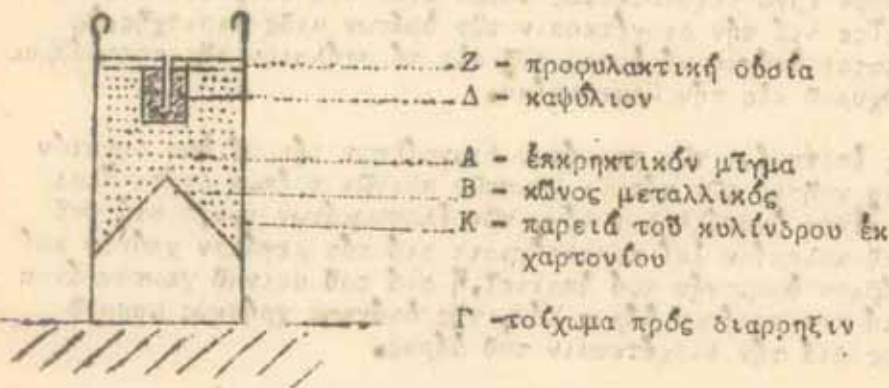 Ζ - προφυλακτική ουσία
Δ - καψύλιον
Α - ἐπκρηκτικόν μῖγμα
Β - κῶνος μεταλλικός
Κ - παρειά τοῦ κυλίνδρου ἐκ
χαρτονίου
Γ -τοίχωμα πρός διαρρηξιν